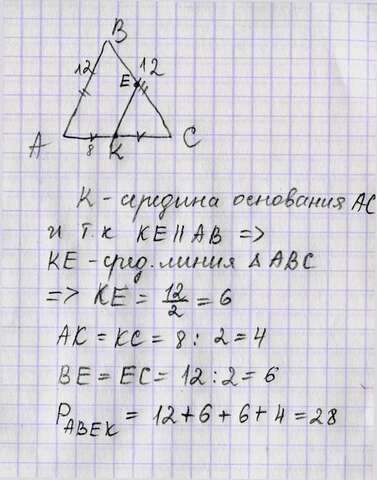 B
12
12
E
A
8
K
C
K - середина основания AC
и т.к KE || AB =>
KE - сред. линия Δ ABC
=> KE = 12/2 = 6
AK = KC = 8 : 2 = 4
BE = EC = 12 : 2 = 6
P ABEK = 12 + 6 + 6 + 4 = 28